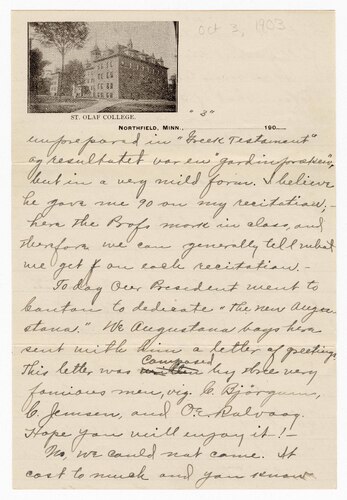 oct 3, 1903
ST. OLAF COLLEGE.
"3"
NORTHFIELD, MINN., 190
unprepared in "Greek Testament"
og resultatet var en
but in a very mild form. I believe
he gave me 90 on my recitation,—
here the Profs mark in class, and
therefore we can generally tell what
we get for each recitation.—
To day Our President went to
Canton to dedicate "the new Augus-
tana." We Augustana boys here
sent with him a letter of greeting.
This letter was written Composed by three very
famous men, viz. C. Björgum,
C. Jensen, and O.E. Rølvaag.
Hope you will enjoy it!—
No, we could not come. It
cost to much and you know